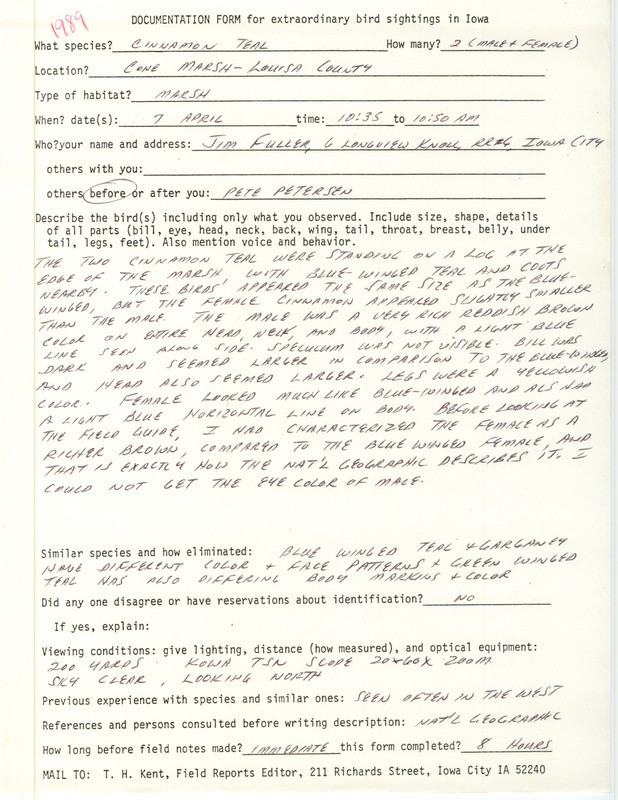 1989
DOCUMENTATION FORM for extraordinary bird sightings in Iowa
What species? CINNAMON TEAL How many? 2 (MALE + FEMALE)
Location? CONE MARSH - LOUISA COUNTY
Type of habitat? MARSH
When? date(s): 7 APRIL time: 10:35 to 10:50 AM
Who?your name and address: JIM FULLER, 6 LONGVIEW KNOLL, RR#6, IOWA CITY
others with you:
others before or after you: PETE PETERSEN
Describe the bird(s) including only what you observed. Include size, shape, details
of all parts (bill, eye, head, neck, back, wing, tail, throat, breast, belly, under
tail, legs, feet). Also mention voice and behavior.
THE TWO CINNAMON TEAL WERE STANDING ON A LOG AT THE
EDGE OF THE MARSH, WITH BLUE-WINGED TEAL AND COOTS
NEARBY. THESE BIRDS APPEARED THE SAME SIZE AS THE BLUE-
WINGED, BUT THE FEMALE CINNAMON APPEARED SLIGHTLY SMALLER
THAN THE MALE. THE MALE WAS A VERY RICH REDDISH BROWN
COLOR ON ENTIRE HEAD, NECK, AND BODY, WITH A LIGHT BLUE
LINE SEEN ALONG SIDE. SPECULUM WAS NOT VISIBLE. BILL WAS
DARK AND SEEMED LARGER IN COMPARISON TO THE BLUE-WINGED,
AND HEAD ALSO SEEMED LARGER. LEGS WERE A YELLOWISH
COLOR. FEMALE LOOKED MUCH LIKE BLUE-WINGED AND ALS HAD
A LIGHT BLUE HORIZONTAL LINE ON BODY. BEFORE LOOKING AT
THE FIELD GUIDE, I HAD CHARACTERIZED THE FEMALE AS A
RICHER BROWN, COMPARED TO THE BLUE WINGED FEMALE, AND
THAT IS EXACTLY HOW THE NAT'L GEOGRAPHIC DESCRIBES IT. I
COULD NOT GET THE EYE COLOR OF MALE.
Similar species and how eliminated: BLUE WINGED TEAL + GARGANEY
HAVE DIFFERENT COLOR + FACE PATTERNS + GREEN WINGED
TEAL HAS ALSO DIFFERING BODY MARKINS + COLOR
Did any one disagree or have reservations about identification? NO
If yes, explain:
Viewing conditions: give lighting, distance (how measured), and optical equipment:
200 YARDS. KOWA TSN SCOPE 20-60X ZOOM.
SKY CLEAR, LOOKING NORTH
Previous experience with species and similar ones: SEEN OFTEN IN THE WEST
References and persons consulted before writing description: NAT'L GEOGRAPHIC
How long before field notes made? IMMEDIATE this form completed? 8 HOURS
MAIL TO: T. H. Kent, Field Reports Editor, 211 Richards Street, Iowa City IA 52240